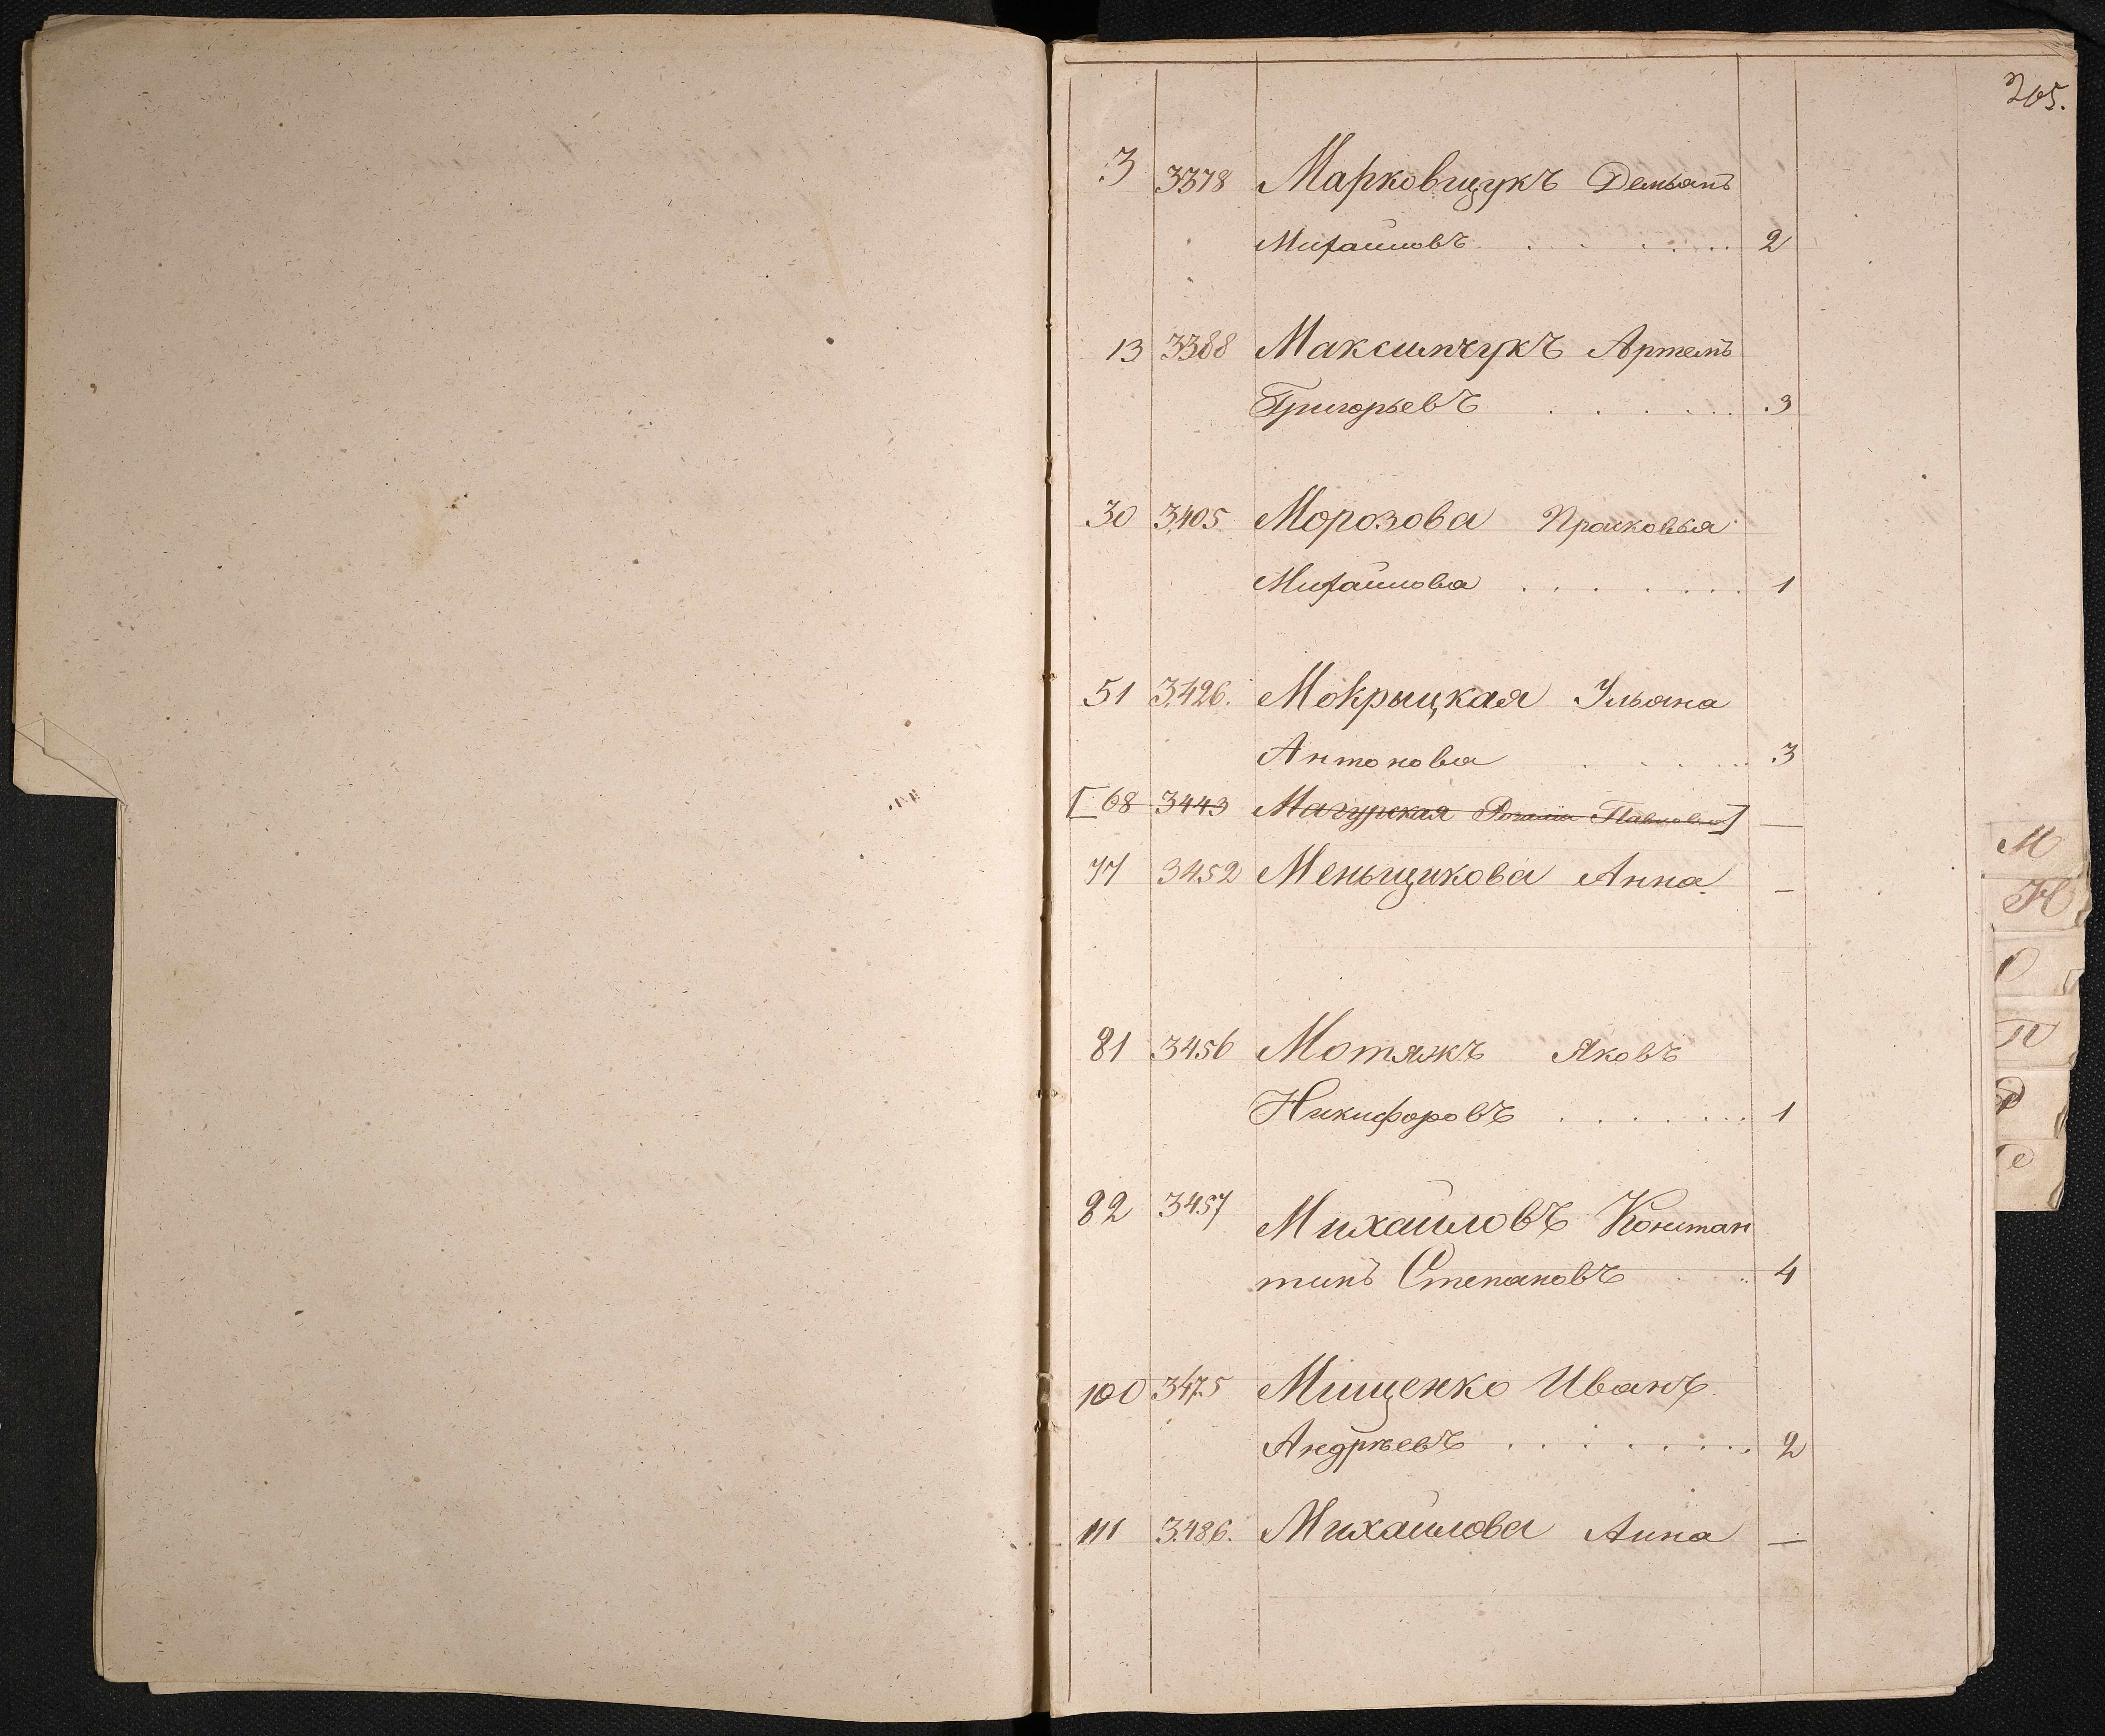 205.
3 3378 Марковщукъ Демьянъ
Михайловъ . . . . . . 2
13 3388 Максимчукъ Артемъ
Григорьевъ . . . . . . 3
30 3405 Морозова Прасковья
Михайлова . . . . . . . 1
51 3426. Мокрыцкая Ульяна
Антонова . . . . . 3
[68 3443 Магурская Розалія Павлова] —
77 3452 Меньщикова Анна —
81 3456 Мотяжъ Яковъ
Никифоровъ . . . . . . . 1
82 3457 Михайловъ Констан
тинъ Степановъ . . . 4
100 3475 Мищенко Иванъ
Андрѣевъ . . . . . . . . 2
111 3486. Михайлова Анна —
М
Н
О
П
Р
С